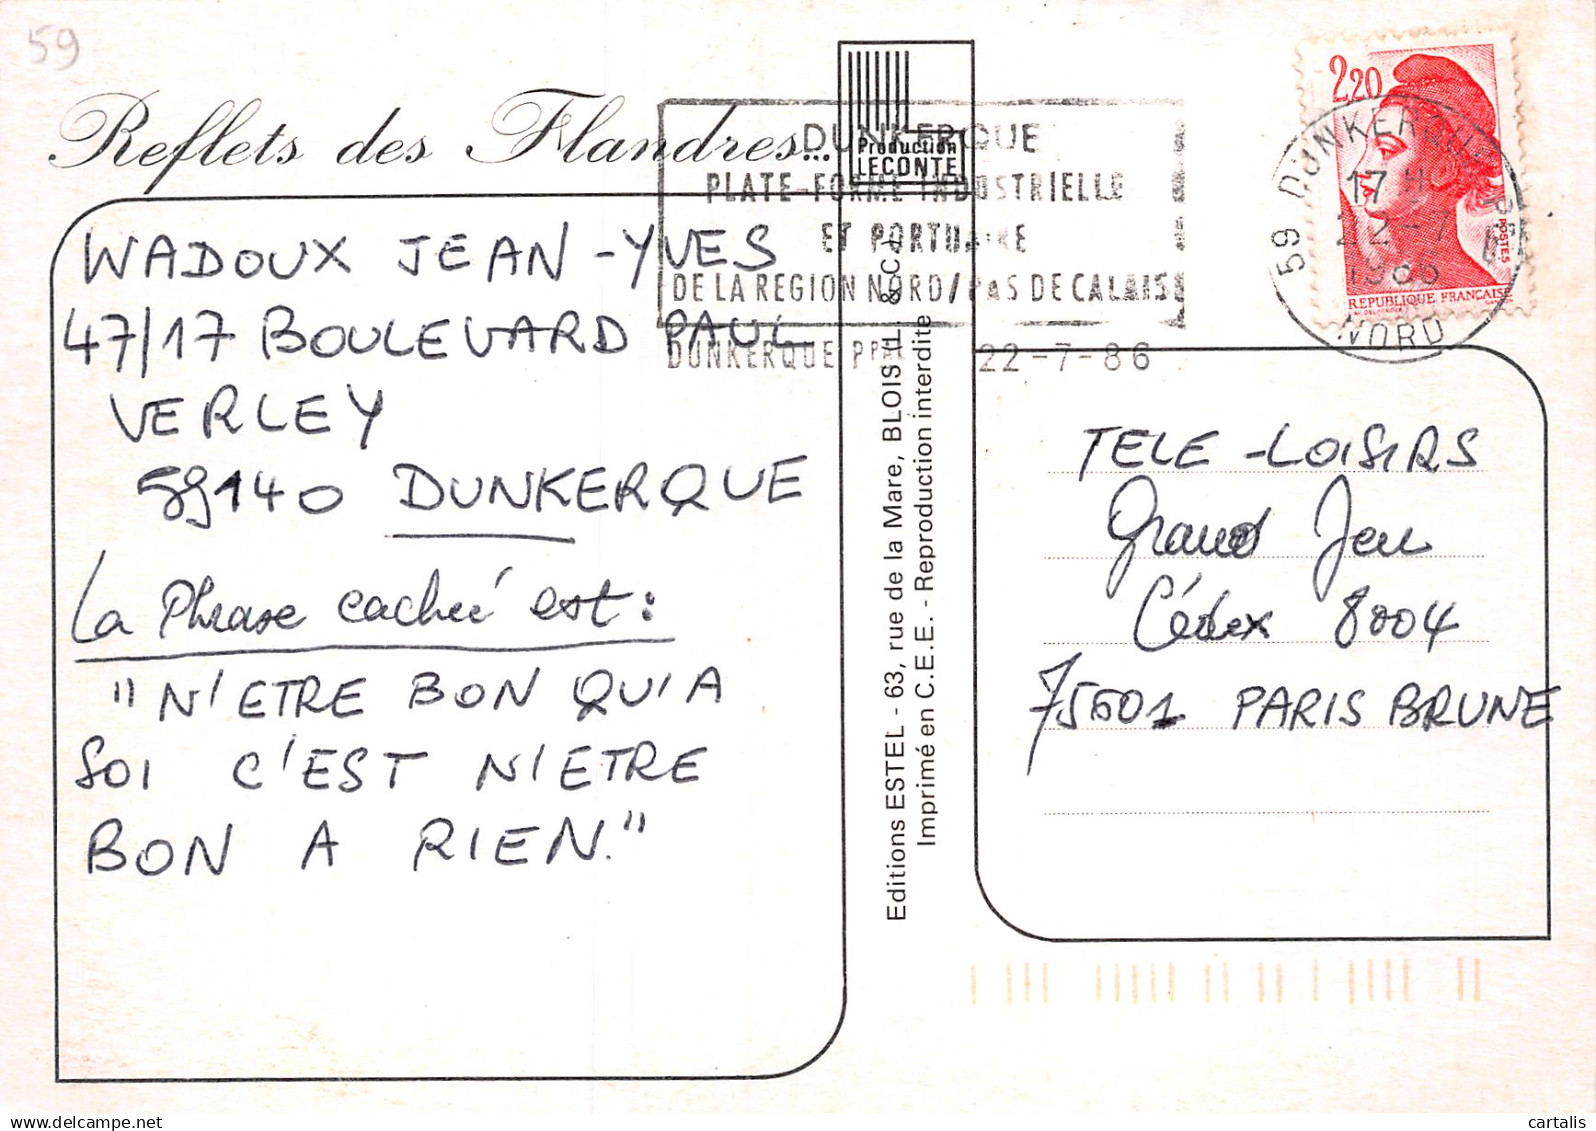 59
Reflets des Flandres...
Production
LECONTE
DUNKERQUE
PLATE-FORME INDUSTRIELLE
ET PORTUAIRE
DE LA REGION NORD/PAS DE CALAIS
DUNKERQUE PPAL 22-7-86
2,20
POSTES
REPUBLIQUE FRANÇAISE
59 DUNKERQUE PPAL
17 H
22-7
1986
NORD
WADOUX JEAN-YVES
47/17 BOULEVARD PAUL
VERLEY
59140 DUNKERQUE
La Phrase cachée est:
"N'ETRE BON QU'A
SOI C'EST N'ETRE
BON A RIEN."
Editions ESTEL - 63, rue de la Mare, BLOIS & Cie
Imprimé en C.E.E. - Reproduction interdite
TELE-LOISIRS
Grand Jeu
Cédex 8004
75601 PARIS BRUNE
cartalis
www.delcampe.net